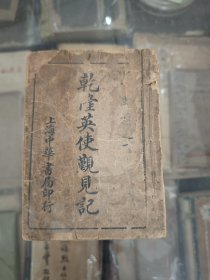 乾隆英使觀見記
上海中華書局印行